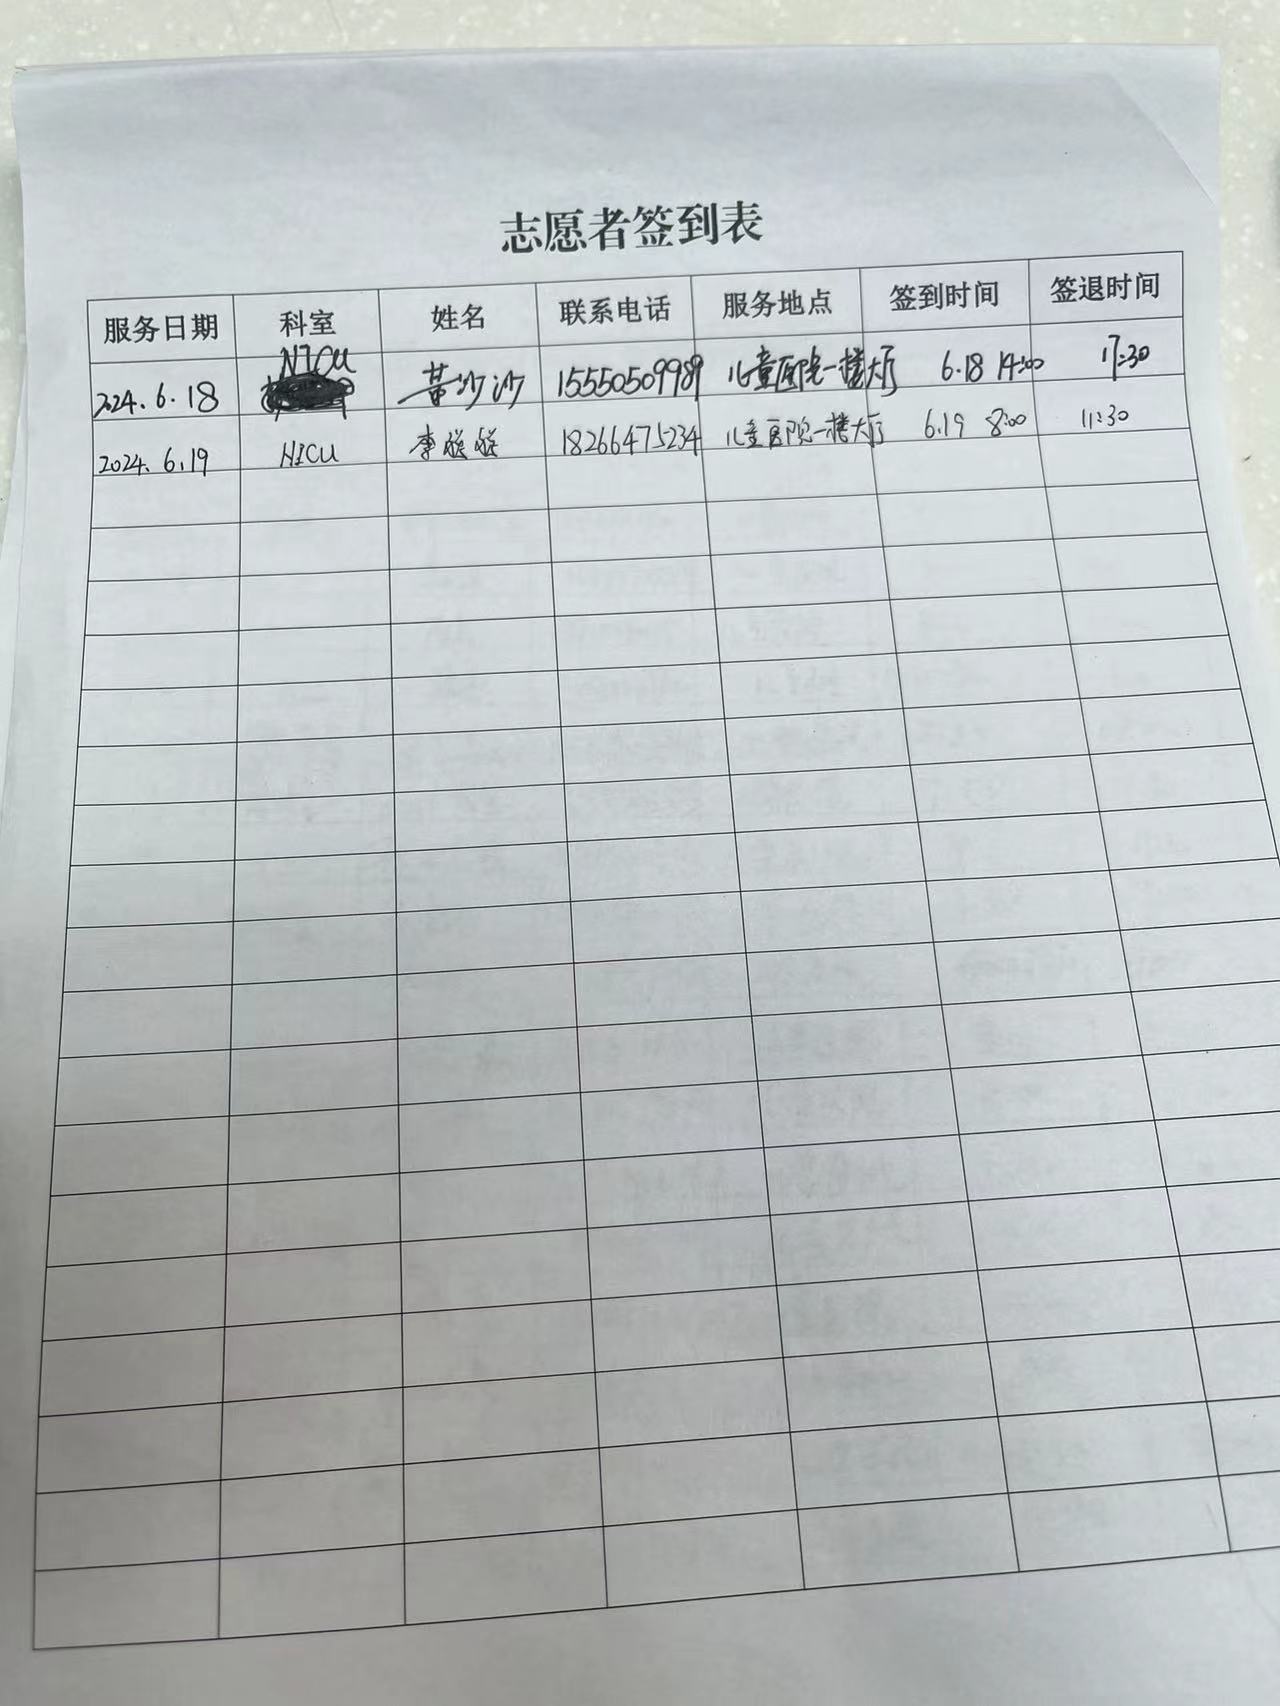 志愿者签到表
服务日期 科室 姓名 联系电话 服务地点 签到时间 签退时间
2024.6.18 NICU 黄沙沙 15550509989 儿童医院一楼大厅 6.18 14:00 17:30
2024.6.19 NICU 李 18266475234 儿童医院一楼大厅 6.19 8:00 11:30